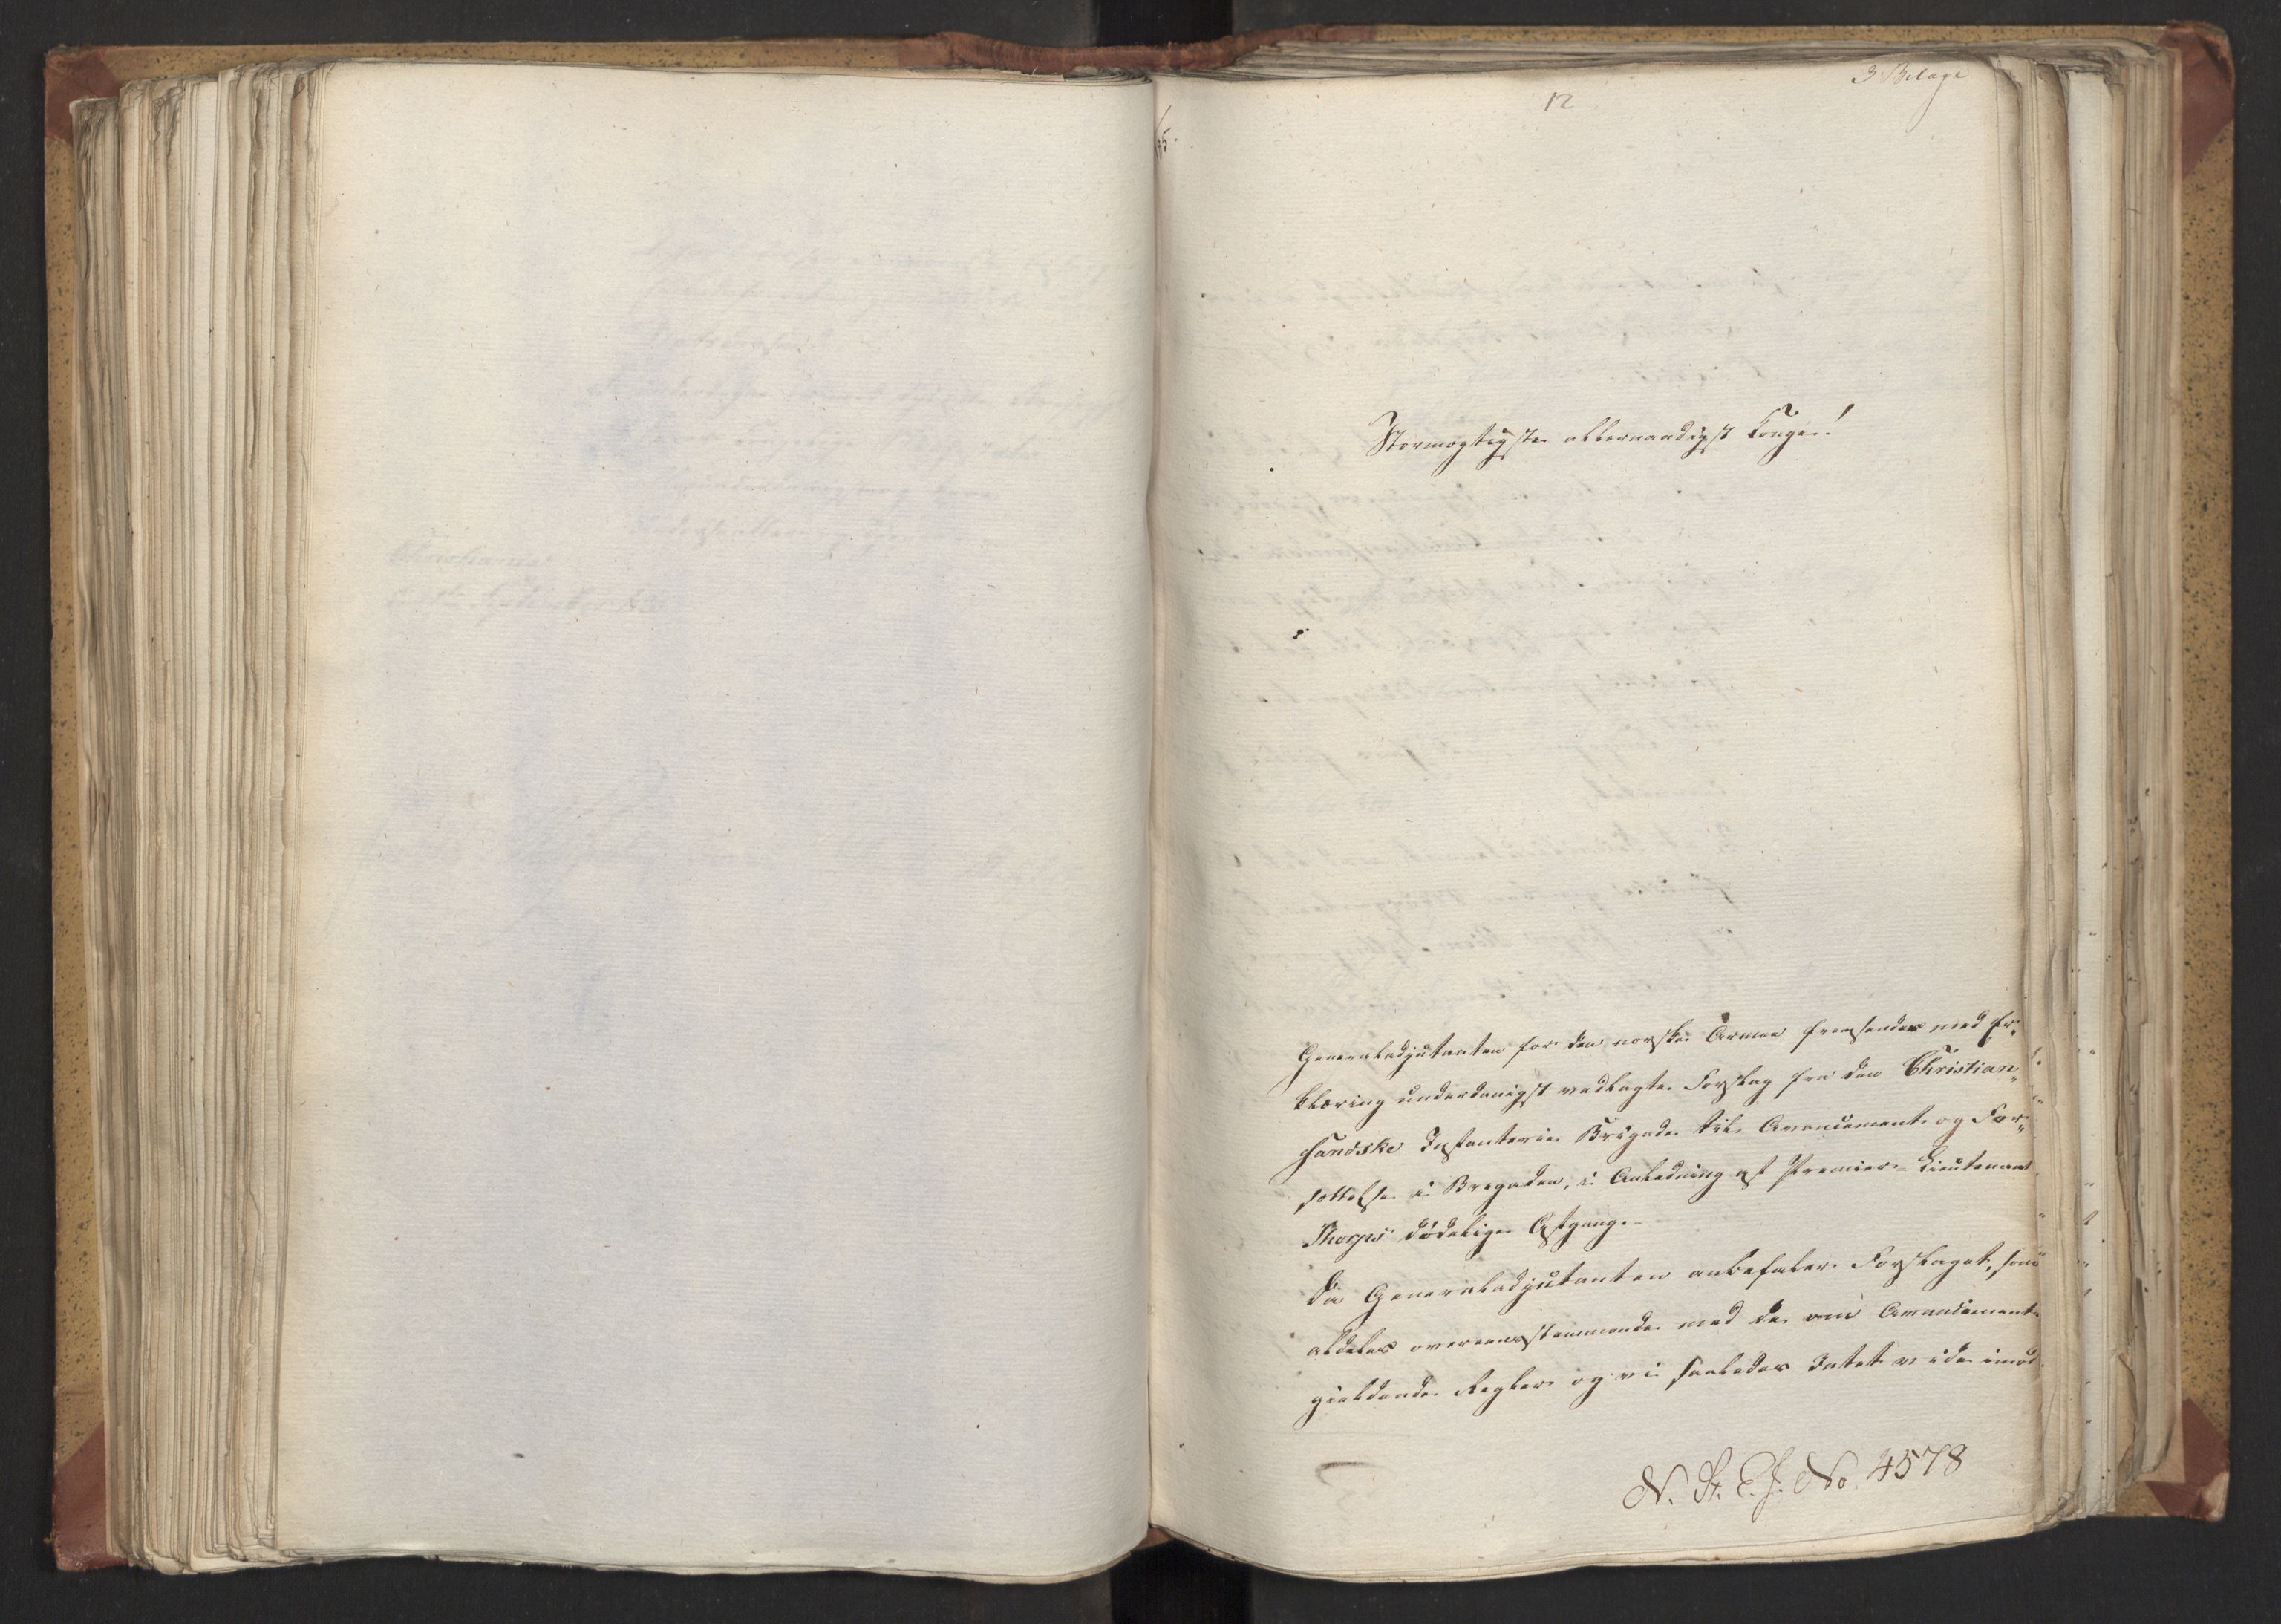 3 Bilage
12
Stormægtigste allernaadigst Konge!
Generaladjutanten for den norske Armee fremsender med Er„
klæring underdanigst vedlagte Forslag fra den Christian„
sandske Infanterie Brigade til Avancement og For„
sættelse i Brigaden, i Anledning af Premier-Lieutenant
Thorps dødelige Afgang.-
Da Generaladjutanten anbefaler Forslaget, som
aldeles overeensstemmende med de om Avancement
gieldende Regler og vi saaledes Intet vide imod
N. St. E. J. No 4578